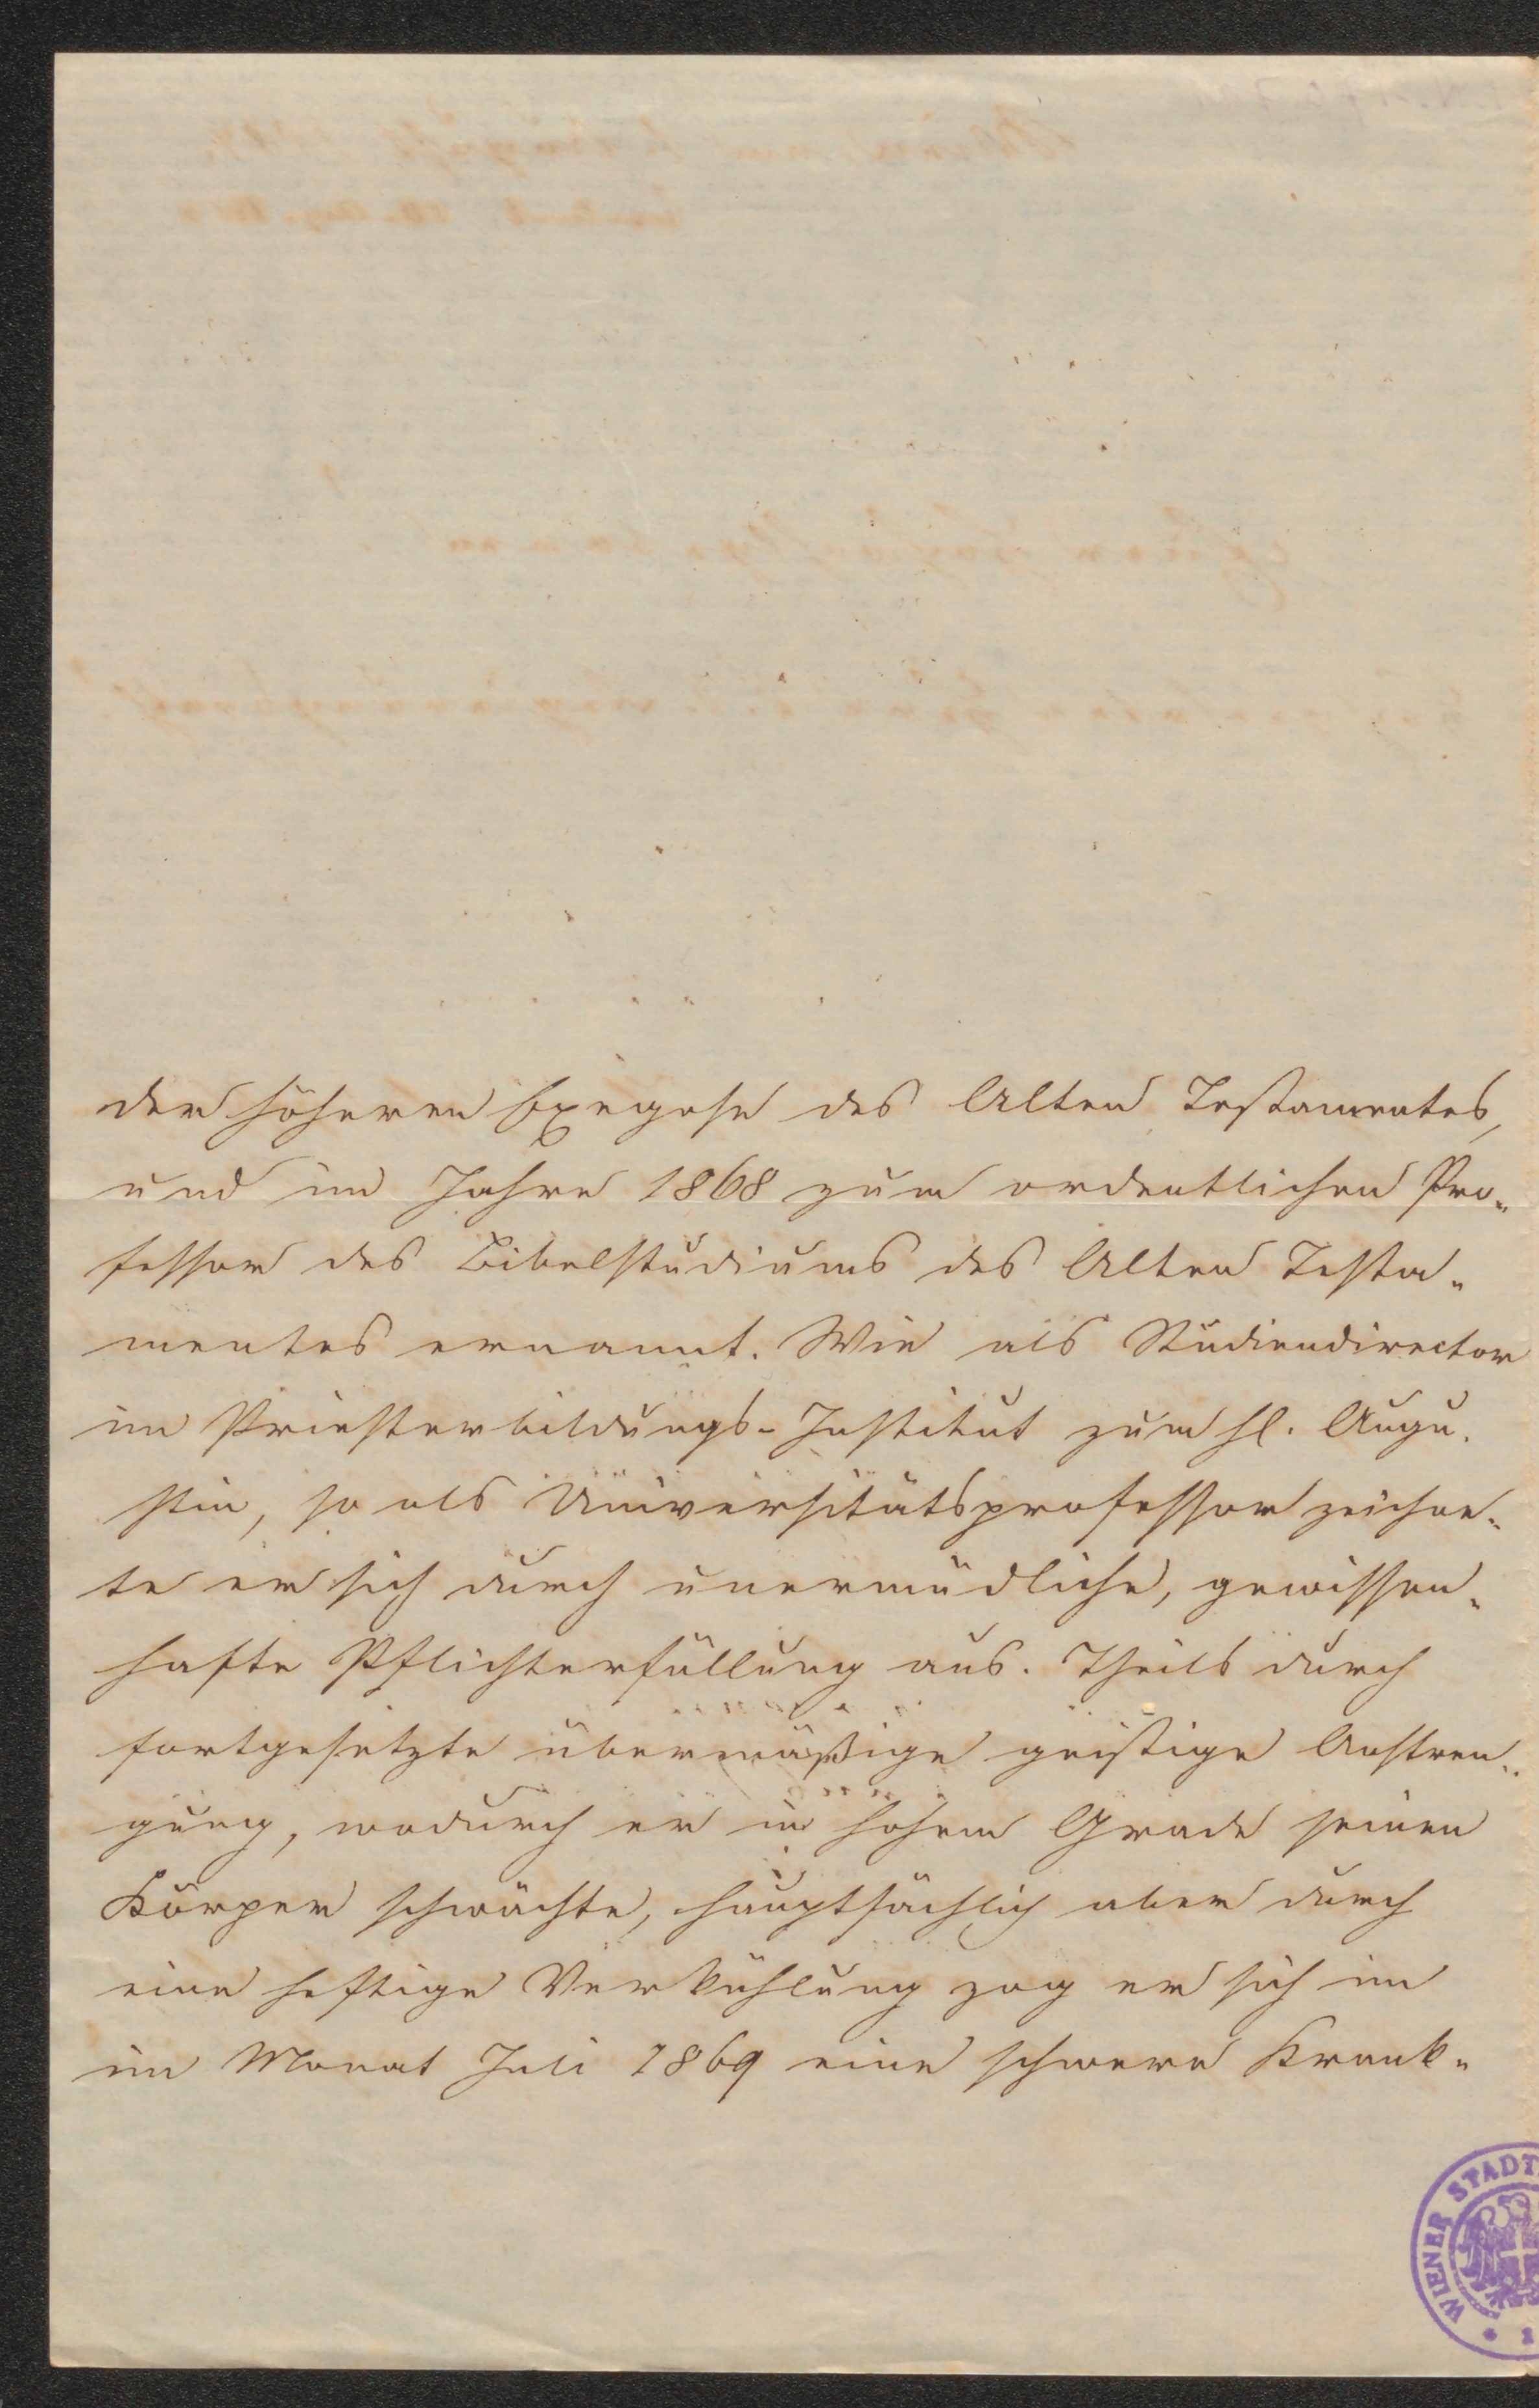 der höheren Exegese des Alten Testamentes,
und im Jahre 1868 zum ordentlichen Pro-
fessor des Bibelstudiums des Alten Testa-
mentes ernannt. Wie als Studiendirector
im Priesterbildungs-Institut zum hl. Augu-
stin, so als Universitätsprofessor zeichne-
te er sich durch unermüdliche, gewissen-
hafte Pflichterfüllung aus. Theils durch
fortgesetzte übermäßige geistige Anstren-
gung, wodurch er in hohem Grade seinen
Körper schwächte, hauptsächlich aber durch
eine heftige Verkühlung zog er sich im
im Monat Juli 1869 eine schwere Krank-
WIENER STADT